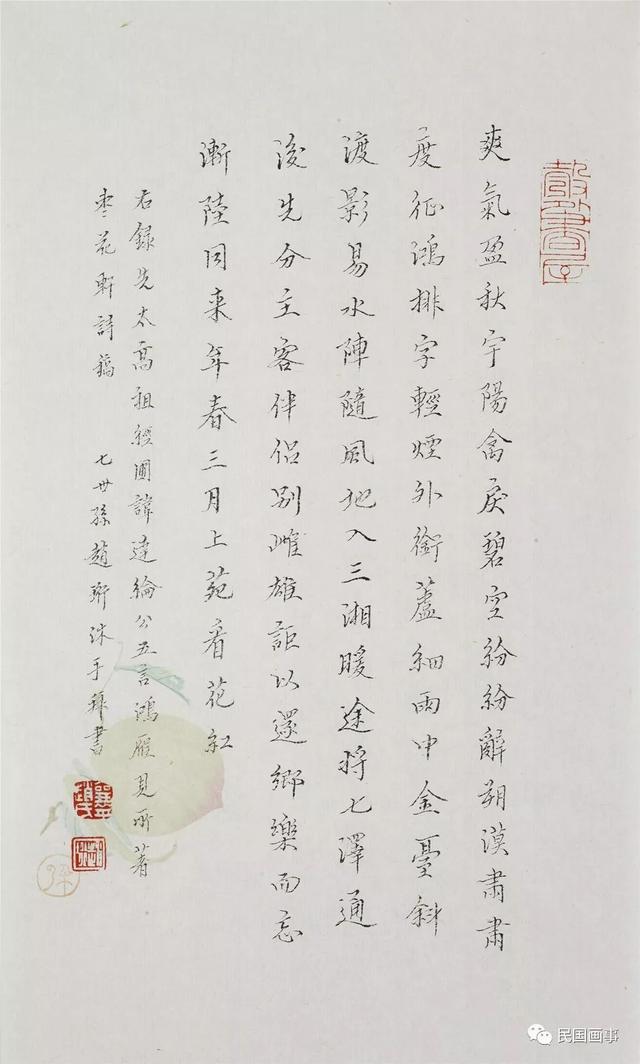 爽氣盈秋宇陽禽戾碧空紛紛辭朔漠肅肅
度征鴻排字輕煙外銜蘆細雨中金臺斜
渡影易水陣隨風地入三湘暖途將七澤通
後先分主客伴侶別雌雄詎以還鄉樂而忘
漸陸同来年春三月上苑看花紅
右録先太高祖經圃諱達綸公五言鴻雁見所著
枣花軒詩稿 七世孫趙珩沐手拜書
彀外書屋
趙
珩
民国画事